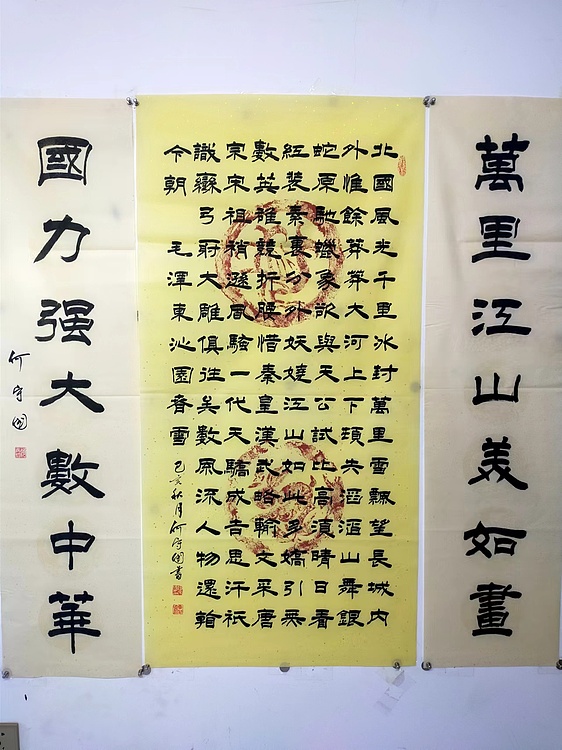 萬里江山美如畫
北國風光千里冰封萬里雪飄望長城內
外惟餘莽莽大河上下頓失滔滔山舞銀
蛇原馳蠟象欲與天公試比高須晴日看
紅裝素裹分外妖嬈江山如此多嬌引無
數英雄競折腰惜秦皇漢武略輸文采唐
宗宋祖稍遜風騷一代天驕成吉思汗祇
識彎弓射大雕俱往矣數風流人物還看
今朝 毛澤東沁園春雪
己亥秋月何守國書
國力强大數中華
何守國